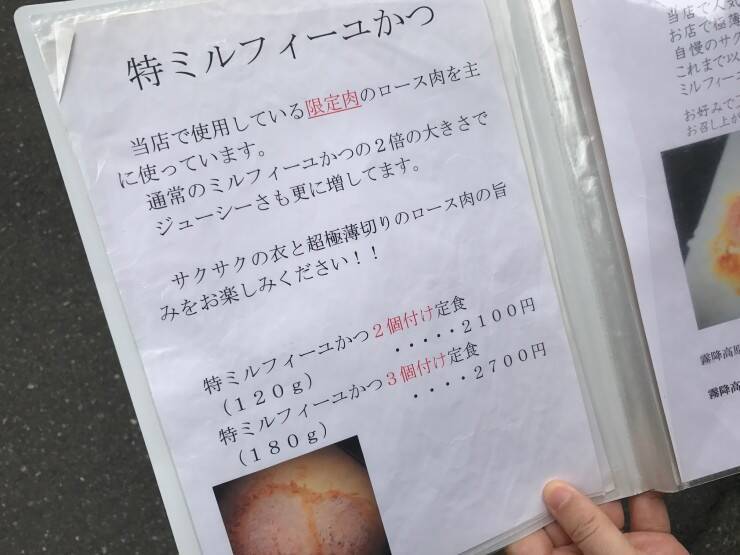 特ミルフィーユかつ
当店で使用している限定肉のロース肉を主
に使っています。
通常のミルフィーユかつの２倍の大きさで
ジューシーさも更に増してます。
サクサクの衣と超極薄切りのロース肉の旨
みをお楽しみください！！
特ミルフィーユかつ２個付け定食
（１２０ｇ） ・・・・・２１００円
特ミルフィーユかつ３個付け定食
（１８０ｇ） ・・・・２７００円
当店で人気
お店で極薄
自慢のサク
これまで以
ミルフィー
お好みで
お召し上が
霧降高原
霧降高